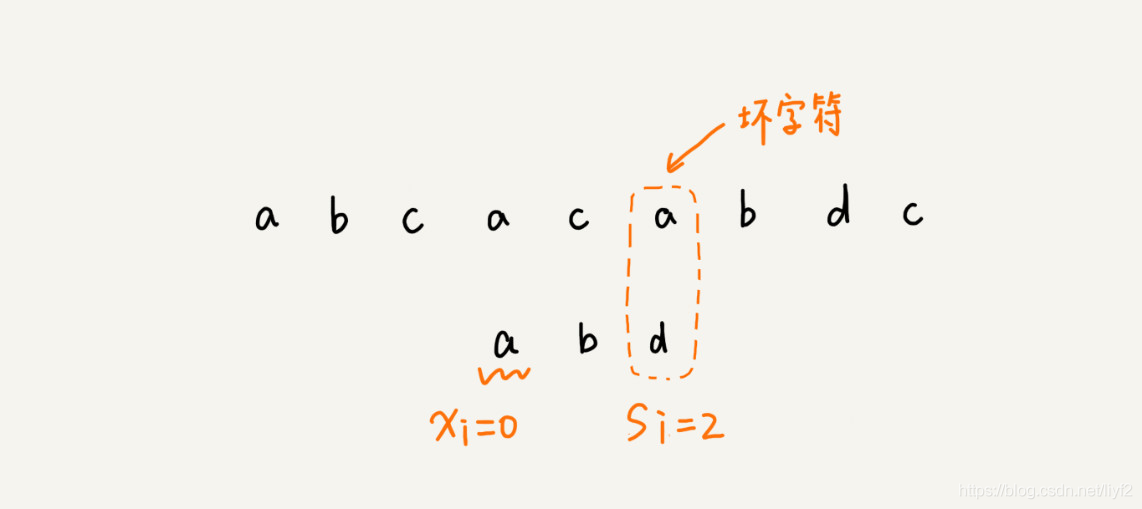 坏字符
a b c a c a b d c
a b d
xi=0 Si=2
https://blog.csdn.net/liyf2